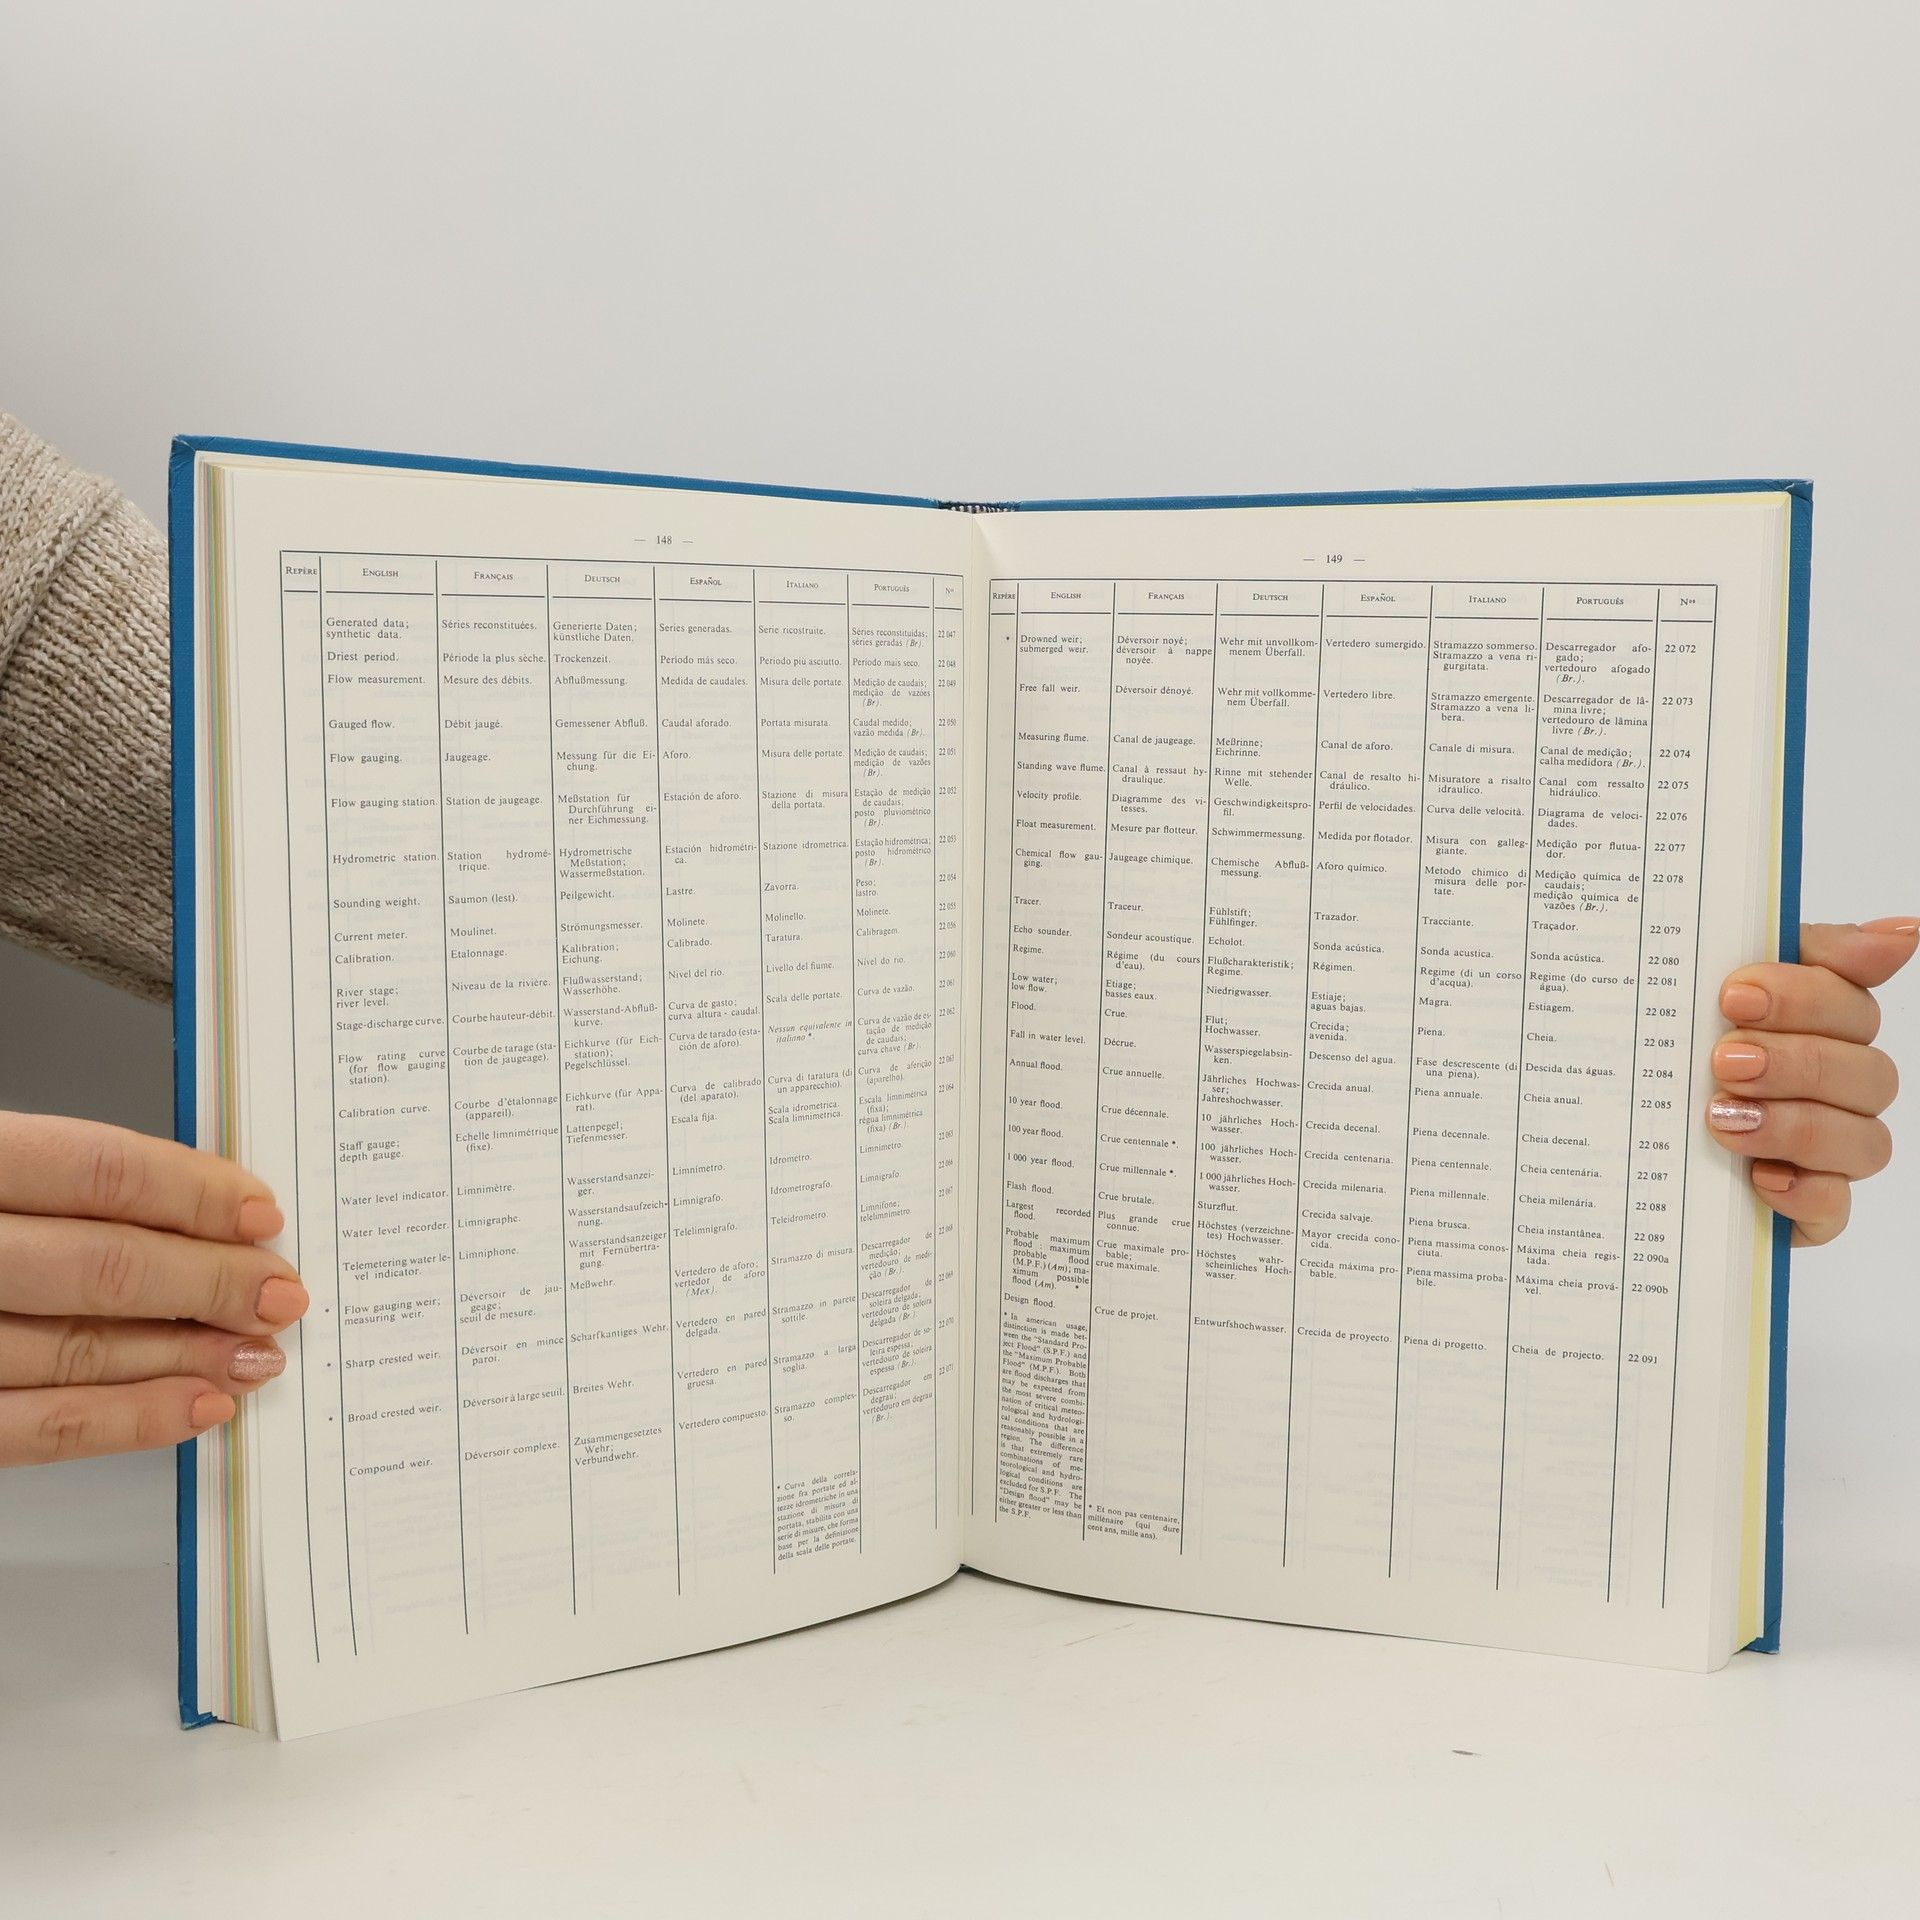 — 148 —
REPÈRE
ENGLISH
FRANÇAIS
DEUTSCH
ESPAÑOL
ITALIANO
PORTUGUÊS
Nos
Generated data; synthetic data.
Séries reconstituées.
Generierte Daten; künstliche Daten.
Series generadas.
Serie ricostruite.
Séries reconstituídas; séries geradas (Br).
22 047
Driest period.
Période la plus sèche.
Trockenzeit.
Período más seco.
Periodo più asciutto.
Período mais seco.
22 048
Flow measurement.
Mesure des débits.
Abflußmessung.
Medida de caudales.
Misura delle portate.
Medição de caudais; medição de vazões (Br).
22 049
Gauged flow.
Débit jaugé.
Gemessener Abfluß.
Caudal aforado.
Portata misurata.
Caudal medido; vazão medida (Br).
22 050
Flow gauging.
Jaugeage.
Messung für die Eichung.
Aforo.
Misura delle portate.
Medição de caudais; medição de vazões (Br).
22 051
Flow gauging station.
Station de jaugeage.
Meßstation für Durchführung einer Eichmessung.
Estación de aforo.
Stazione di misura della portata.
Estação de medição de caudais; posto pluviométrico (Br).
22 052
Hydrometric station.
Station hydrométrique.
Hydrometrische Meßstation; Wassermeßstation.
Estación hidrométrica.
Stazione idrometrica.
Estação hidrométrica; posto hidrométrico (Br).
22 053
Sounding weight.
Saumon (lest).
Peilgewicht.
Lastre.
Zavorra.
Peso; lastro.
22 054
Current meter.
Moulinet.
Strömungsmesser.
Molinete.
Molinello.
Molinete.
22 055
Calibration.
Etalonnage.
Kalibration; Eichung.
Calibrado.
Taratura.
Calibragem.
22 056
River stage; river level.
Niveau de la rivière.
Flußwasserstand; Wasserhöhe.
Nivel del rio.
Livello del fiume.
Nível do rio.
22 060
Stage-discharge curve.
Courbe hauteur-débit.
Wasserstand-Abflußkurve.
Curva de gasto; curva altura - caudal.
Scala delle portate.
Curva de vazão.
22 061
Flow rating curve (for flow gauging station).
Courbe de tarage (station de jaugeage).
Eichkurve (für Eichstation); Pegelschlüssel.
Curva de tarado (estación de aforo).
Nessun equivalente in italiano *.
Curva de vazão de estação de medição de caudais; curva chave (Br).
22 062
Calibration curve.
Courbe d'étalonnage (appareil).
Eichkurve (für Apparat).
Curva de calibrado (del aparato).
Curva di taratura (di un apparecchio).
Curva de aferição (aparelho).
22 063
Staff gauge; depth gauge.
Echelle limnimétrique (fixe).
Lattenpegel; Tiefenmesser.
Escala fija.
Scala idrometrica. Scala limnimetrica.
Escala limnimétrica (fixa); régua limnimétrica (fixa) (Br).
22 064
Water level indicator.
Limnimètre.
Wasserstandsanzeiger.
Limnímetro.
Idrometro.
Limnímetro.
22 065
Water level recorder.
Limnigraphe.
Wasserstandsaufzeichnung.
Limnígrafo.
Idrometrografo.
Limnígrafo.
22 066
Telemetering water level indicator.
Limniphone.
Wasserstandsanzeiger mit Fernübertragung.
Telelimnígrafo.
Teleidrometro.
Limnifone; telelimnímetro.
22 067
* Flow gauging weir; measuring weir.
Déversoir de jaugeage; seuil de mesure.
Meßwehr.
Vertedero de aforo; vertedor de aforo (Mex).
Stramazzo di misura.
Descarregador de medição; vertedouro de medição (Br.).
22 068
* Sharp crested weir.
Déversoir en mince paroi.
Scharfkantiges Wehr.
Vertedero en pared delgada.
Stramazzo in parete sottile.
Descarregador de soleira delgada; vertedouro de soleira delgada (Br.).
22 069
* Broad crested weir.
Déversoir à large seuil.
Breites Wehr.
Vertedero en pared gruesa.
Stramazzo a larga soglia.
Descarregador de soleira espessa; vertedouro de soleira espessa (Br.).
22 070
Compound weir.
Déversoir complexe.
Zusammengesetztes Wehr; Verbundwehr.
Vertedero compuesto.
Stramazzo complesso.
Descarregador em degrau; vertedouro em degrau (Br.).
22 071
* Curva della correlazione fra portate ed altezze idrometriche in una stazione di misura di portata, stabilita con una serie di misure, che forma base per la definizione della scala delle portate.
— 149 —
REPÈRE
ENGLISH
FRANÇAIS
DEUTSCH
ESPAÑOL
ITALIANO
PORTUGUÊS
Nos
* Drowned weir; submerged weir.
Déversoir noyé; déversoir à nappe noyée.
Wehr mit unvollkommenem Überfall.
Vertedero sumergido.
Stramazzo sommerso. Stramazzo a vena rigurgitata.
Descarregador afogado; vertedouro afogado (Br.).
22 072
Free fall weir.
Déversoir dénoyé.
Wehr mit vollkommenem Überfall.
Vertedero libre.
Stramazzo emergente. Stramazzo a vena libera.
Descarregador de lâmina livre; vertedouro de lâmina livre (Br.).
22 073
Measuring flume.
Canal de jaugeage.
Meßrinne; Eichrinne.
Canal de aforo.
Canale di misura.
Canal de medição; calha medidora (Br.).
22 074
Standing wave flume.
Canal à ressaut hydraulique.
Rinne mit stehender Welle.
Canal de resalto hidráulico.
Misuratore a risalto idraulico.
Canal com ressalto hidráulico.
22 075
Velocity profile.
Diagramme des vitesses.
Geschwindigkeitsprofil.
Perfil de velocidades.
Curva delle velocità.
Diagrama de velocidades.
22 076
Float measurement.
Mesure par flotteur.
Schwimmermessung.
Medida por flotador.
Misura con galleggiante.
Medição por flutuador.
22 077
Chemical flow gauging.
Jaugeage chimique.
Chemische Abflußmessung.
Aforo químico.
Metodo chimico di misura delle portate.
Medição química de caudais; medição química de vazões (Br.).
22 078
Tracer.
Traceur.
Fühlstift; Fühlfinger.
Trazador.
Tracciante.
Traçador.
22 079
Echo sounder.
Sondeur acoustique.
Echolot.
Sonda acústica.
Sonda acustica.
Sonda acústica.
22 080
Regime.
Régime (du cours d'eau).
Flußcharakteristik; Regime.
Régimen.
Regime (di un corso d'acqua).
Regime (do curso de água).
22 081
Low water; low flow.
Etiage; basses eaux.
Niedrigwasser.
Estiaje; aguas bajas.
Magra.
Estiagem.
22 082
Flood.
Crue.
Flut; Hochwasser.
Crecida; avenida.
Piena.
Cheia.
22 083
Fall in water level.
Décrue.
Wasserspiegelabsinken.
Descenso del agua.
Fase descrescente (di una piena).
Descida das águas.
22 084
Annual flood.
Crue annuelle.
Jährliches Hochwasser; Jahreshochwasser.
Crecida anual.
Piena annuale.
Cheia anual.
22 085
10 year flood.
Crue décennale.
10 jährliches Hochwasser.
Crecida decenal.
Piena decennale.
Cheia decenal.
22 086
100 year flood.
Crue centennale *.
100 jährliches Hochwasser.
Crecida centenaria.
Piena centennale.
Cheia centenária.
22 087
1 000 year flood.
Crue millennale *.
1 000 jährliches Hochwasser.
Crecida milenaria.
Piena millennale.
Cheia milenária.
22 088
Flash flood.
Crue brutale.
Sturzflut.
Crecida salvaje.
Piena brusca.
Cheia instantânea.
22 089
Largest recorded flood.
Plus grande crue connue.
Höchstes (verzeichnetes) Hochwasser.
Mayor crecida conocida.
Piena massima conosciuta.
Máxima cheia registada.
22 090a
Probable maximum flood : maximum probable flood (M.P.F.) (Am); maximum possible flood (Am). *
Crue maximale probable; crue maximale.
Höchstes wahrscheinliches Hochwasser.
Crecida máxima probable.
Piena massima probabile.
Máxima cheia provável.
22 090b
Design flood.
Crue de projet.
Entwurfshochwasser.
Crecida de proyecto.
Piena di progetto.
Cheia de projecto.
22 091
* In american usage, distinction is made between the "Standard Project Flood" (S.P.F.) and the "Maximum Probable Flood" (M.P.F.). Both are flood discharges that may be expected from the most severe combination of critical meteorological and hydrological conditions that are reasonably possible in a region. The difference is that extremely rare combinations of meteorological and hydrological conditions are excluded for S.P.F. The "Design flood" may be either greater or less than the S.P.F.
* Et non pas centenaire, millénaire (qui dure cent ans, mille ans).